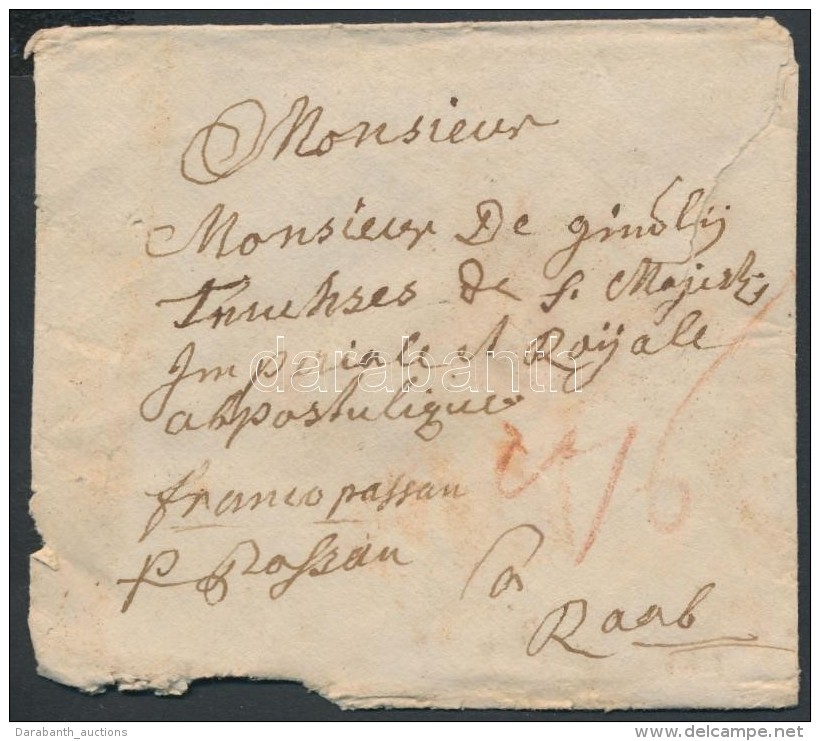 Monsieur
Monsieur De gindlÿ
Truchses de S. Majesté
Imperiale et Roÿale
appostulique
franco passau
p Passau
a
Raab
darabanth
Darabanth_auctions
www.delcampe.net